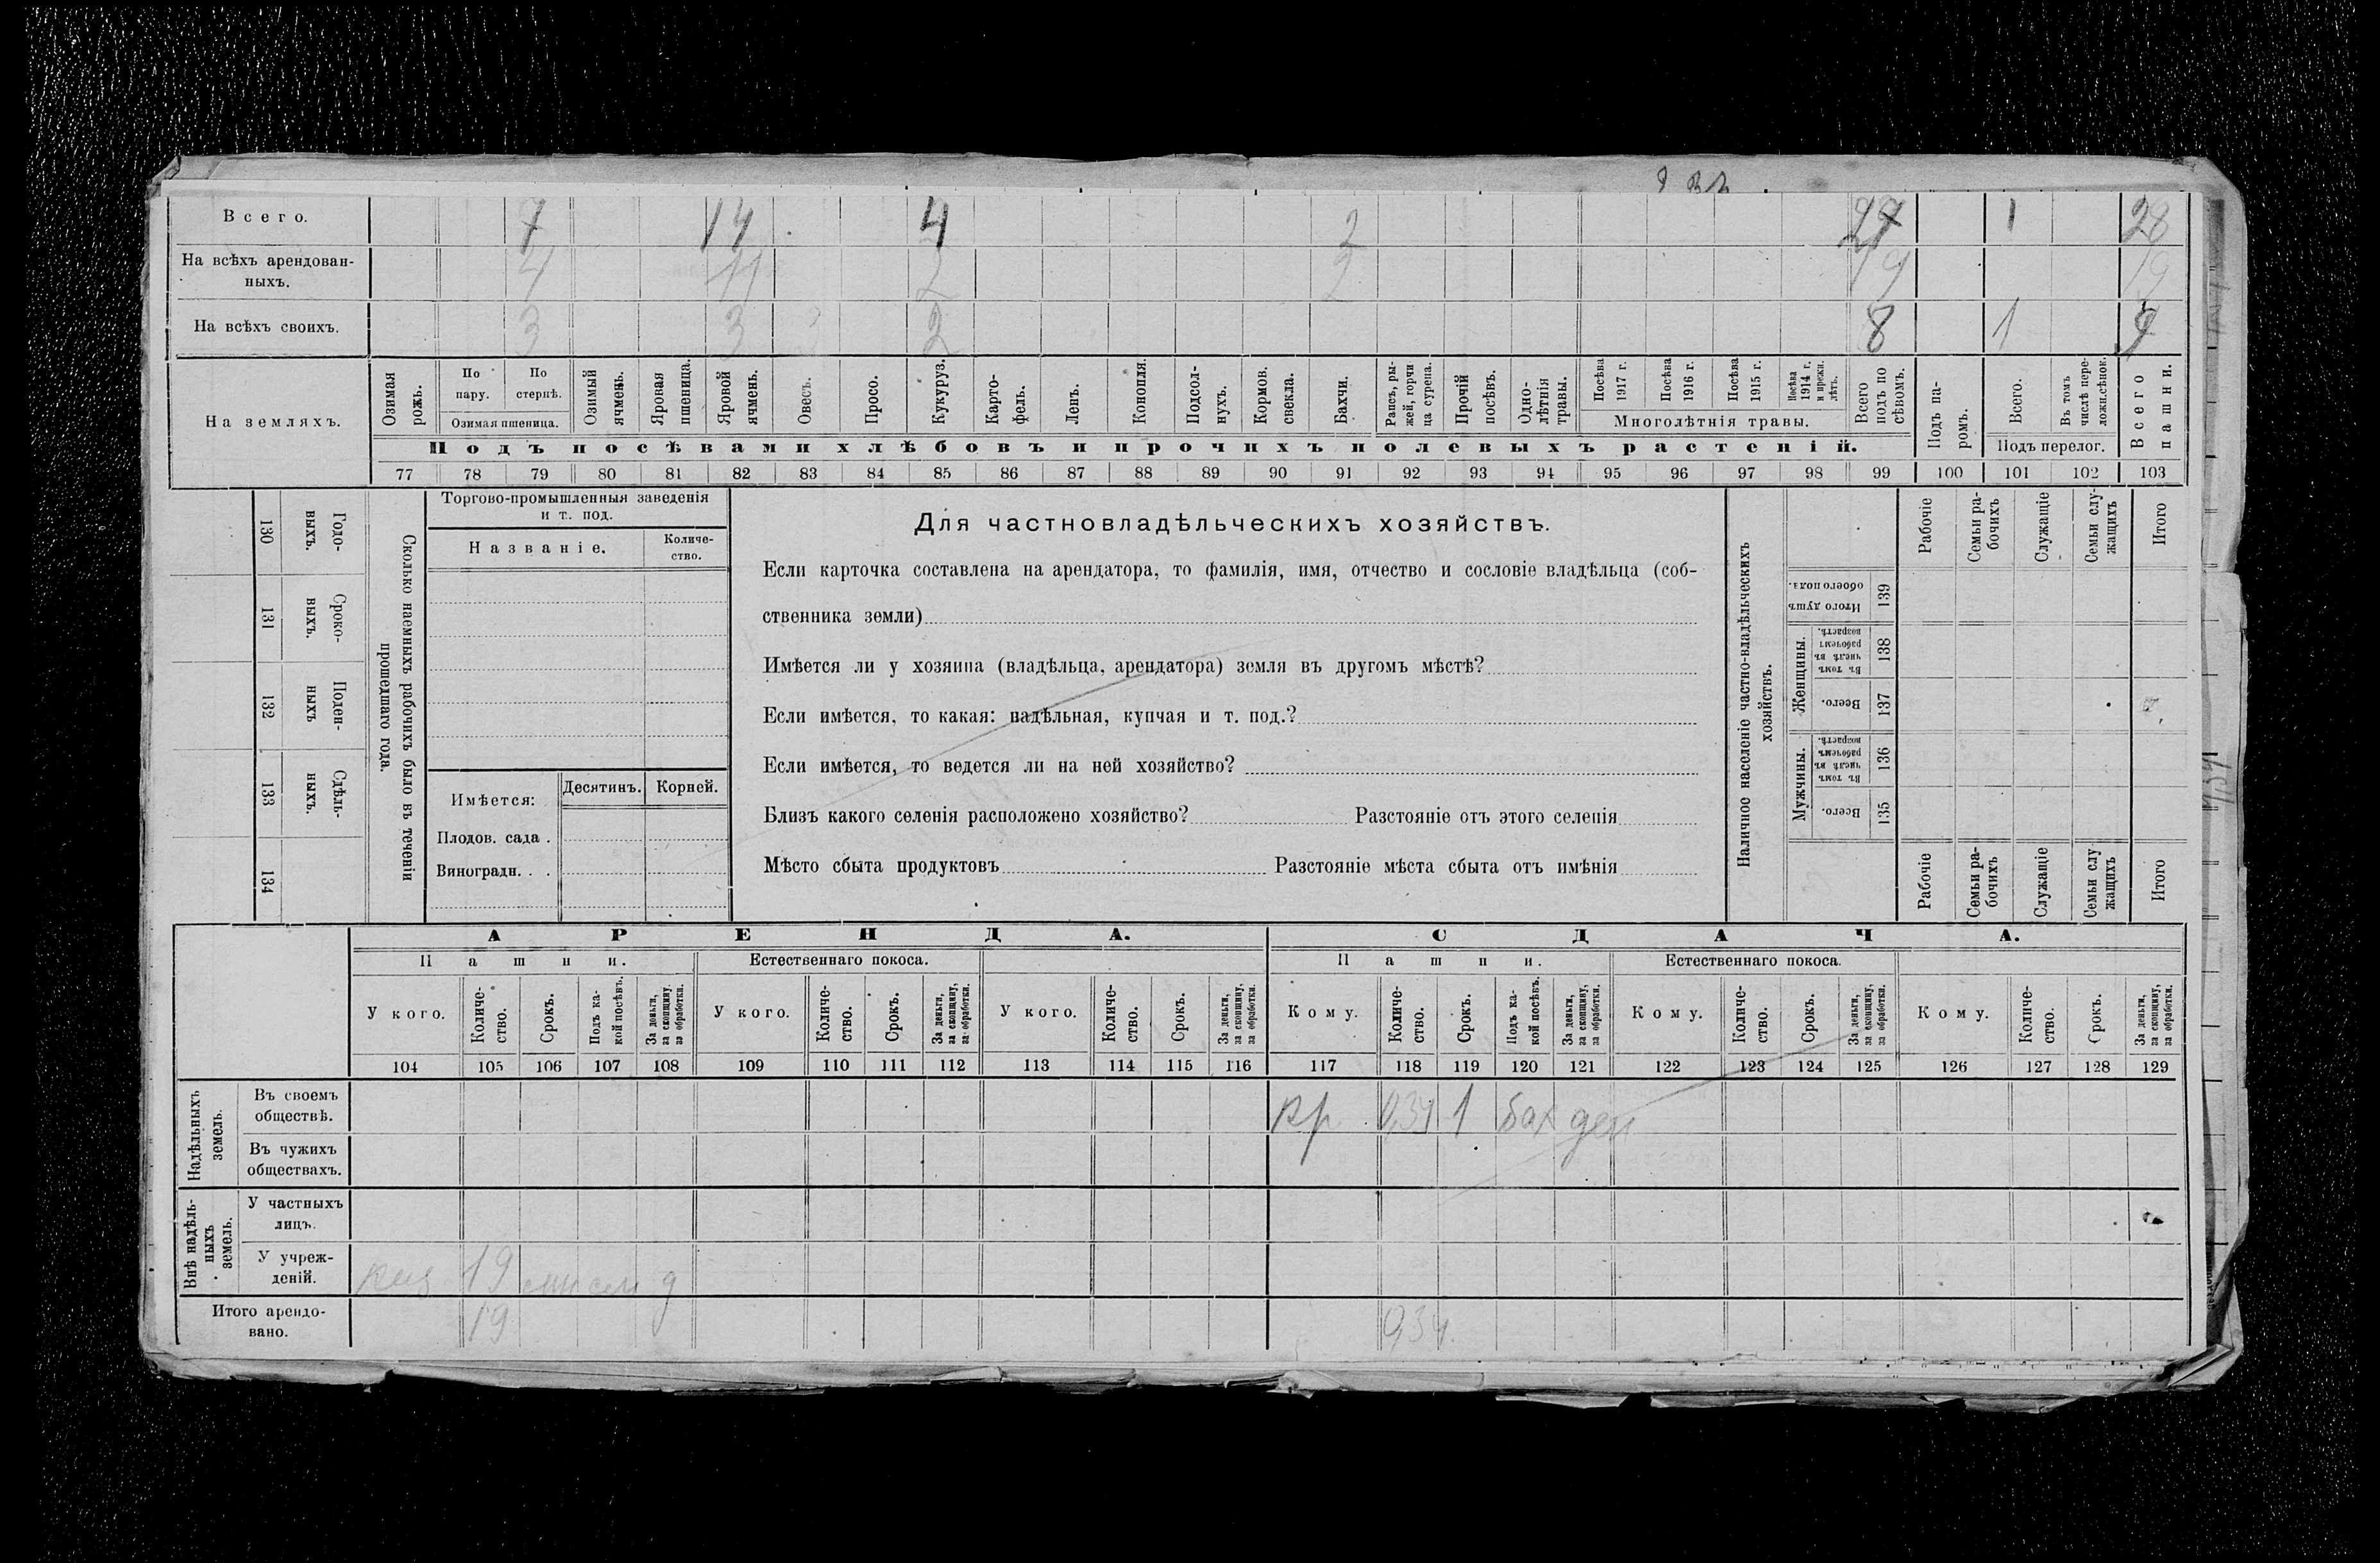 Всего. 7 14 4 2 27 1 28
На всѣхъ арендован-
ныхъ. 4 11 2 2 19 19
На всѣхъ своихъ. 3 3 2 8 1 9
На земляхъ.
Озимая рожь.
По пару.
По стернѣ.
Озимая пшеница.
Озимый ячмень.
Яровая пшеница.
Яровой ячмень.
Овесъ.
Просо.
Кукуруз.
Карто-
фель.
Ленъ.
Конопля.
Подсол-
нухъ.
Кормов.
свекла.
Бахчи.
Рапсъ, ры-
жей, горчи
ца сурепа.
Прочій
посѣвъ.
Одно-
лѣтнія
травы.
Посѣва
1917 г.
Посѣва
1916 г.
Посѣва
1915 г.
Посѣва
1914 г.
и прежн.
лѣтъ.
Многолѣтнія травы.
Всего
подъ по
сѣвомъ.
Подъ па-
ромъ.
Всего.
Въ томъ
числѣ пере-
ложн.сѣнок.
Подъ перелог.
Всего
пашни.
Подъ посѣвами хлѣбовъ и прочихъ полевыхъ растеній.
77 78 79 80 81 82 83 84 85 86 87 88 89 90 91 92 93 94 95 96 97 98 99 100 101 102 103
130 Годо-
выхъ.
131 Сроко-
выхъ.
132 Поден-
ныхъ
133 Сдѣль-
ныхъ.
134
Сколько наемныхъ рабочихъ было въ теченіи
прошедшаго года.
Торгово-промышленныя заведенія
и т. под.
Названіе.
Количе-
ство.
Имѣется:
Десятинъ. Корней.
Плодов. сада .
Виноградн. . .
Для частновладѣльческихъ хозяйствъ.
Если карточка составлена на арендатора, то фамилія, имя, отчество и сословіе владѣльца (соб-
ственника земли)
Имѣется ли у хозяина (владѣльца, арендатора) земля въ другомъ мѣстѣ?
Если имѣется, то какая: надѣльная, купчая и т. под.?
Если имѣется, то ведется ли на ней хозяйство?
Близъ какого селенія расположено хозяйство? Разстояніе отъ этого селенія
Мѣсто сбыта продуктовъ Разстояніе мѣста сбыта отъ имѣнія
Наличное населеніе частно-владѣльческихъ
хозяйствъ.
Рабочіе
Семьи ра-
бочихъ
Служащіе
Семьи слу-
жащихъ
Итого
Итого душъ
обоего пола.
139
Женщины.
Въ томъ
числѣ въ
рабочемъ
возрастѣ.
138
Всего.
137
Мужчины.
Въ томъ
числѣ въ
рабочемъ
возрастѣ.
136
Всего.
135
Рабочіе
Семьи ра-
бочихъ
Служащіе
Семьи слу
жащихъ
Итого
АРЕНДА. СДАЧА.
Пашни. Естественнаго покоса. Пашни. Естественнаго покоса.
У кого.
Количе-
ство.
Срокъ.
Подъ ка-
кой посѣвъ.
За деньги,
за скопщину,
за обработки.
У кого.
Количе-
ство.
Срокъ.
За деньги,
за скопщину,
за обработки.
У кого.
Количе-
ство.
Срокъ.
За деньги,
за скопщину,
за обработки.
Кому.
Количе-
ство.
Срокъ.
Подъ ка-
кой посѣвъ.
За деньги,
за скопщину,
за обработки.
Кому.
Количе-
ство.
Срокъ.
За деньги,
за скопщину,
за обработки.
Кому.
Количе-
ство.
Срокъ.
За деньги,
за скопщину,
за обработки.
104 105 106 107 108 109 110 111 112 113 114 115 116 117 118 119 120 121 122 123 124 125 126 127 128 129
Надѣльныхъ
земель.
Въ своемъ
обществѣ. кр 0,34 1 бах ден
Въ чужихъ
обществахъ.
Внѣ надѣль-
ныхъ
земель.
У частныхъ
лицъ.
У учреж-
деній. 19 д
Итого арендо-
вано. 19 0,34.